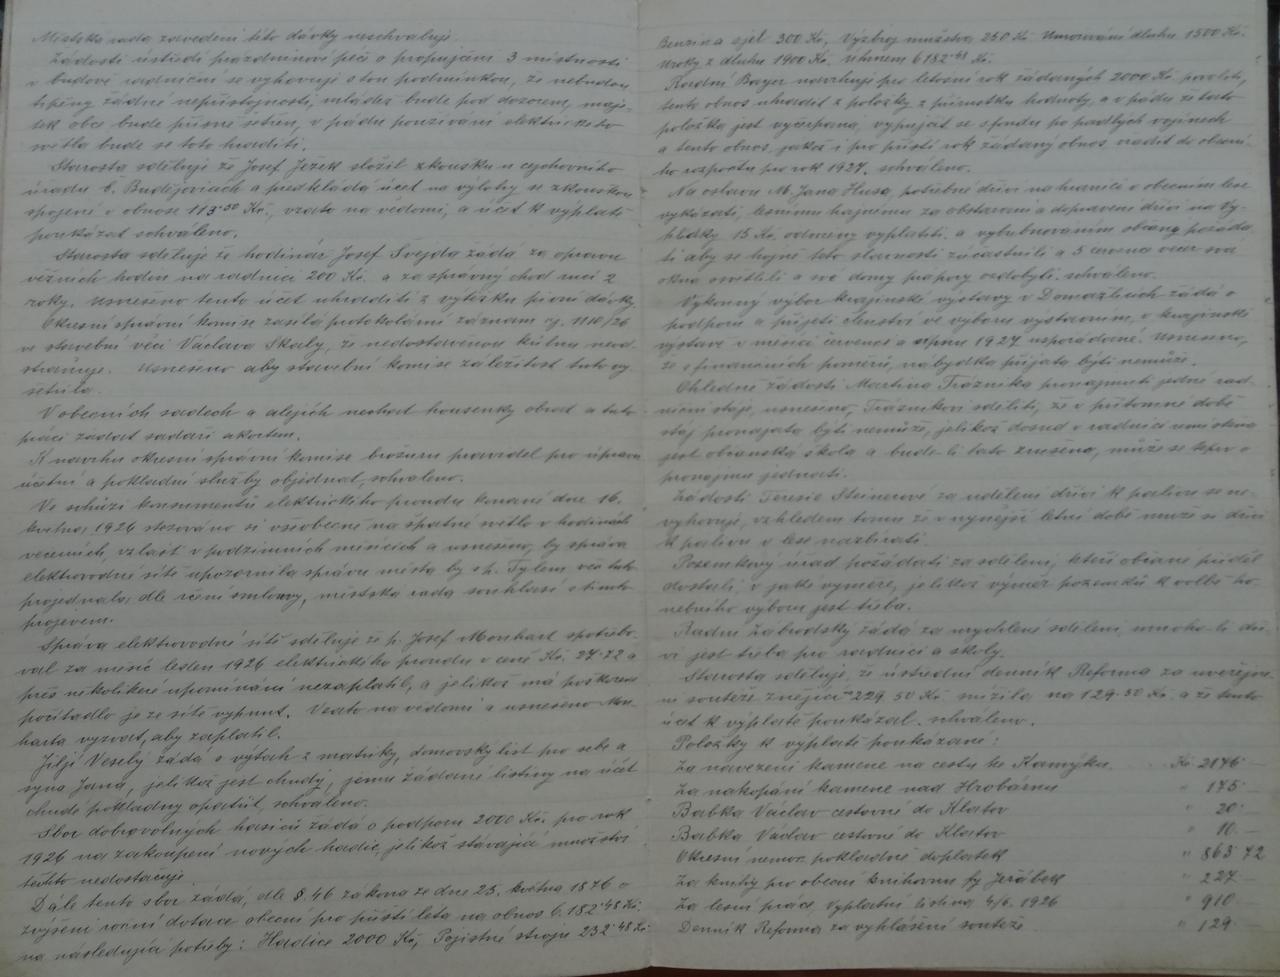 Městská rada zavedení této dávky neschvaluje.
Žádosti ústředí prázdninové péče o propujčení 3 místností
v budově radniční se vyhovuje s tou podmínkou, že nebudou
trpěny žádné nepřístojnosti, mládež bude pod dozorem, maje-
tek obce bude přísně šetřen, v pádu používání elektrického
světla bude se toto hraditi.
Starosta sděluje že Josef Ježek složil zkoušku u cejchovního
úradu č. Budějovicích a předkládá účet na výlohy se zkouškou
spojené v obnose 113·50 Kč, vzato na vědomí, a účet k výplatě
poukázat schváleno.
Starosta sděluje že hodinář Josef Švejda žádá za opravu
věžních hodin na radnici 200 Kč. a za správný chod ručí 2
roky. Usneseno tento účet uhraditi z výtěžku pivní dávky.
Okresní správní komise zasílá protokolární záznam čj. 1110/26
ve stavební věci Václava Skaly, že nedostavenou kůlnu neod-
straňuje. Usneseno aby stavební komise záležitost tuto vy-
šetřila.
V obecních sadech a alejích nechat housenky obrat a tuto
práci zadat sadaři akortem.
K návrhu okresní správní komise brožuru pravidel pro úpravu
účetní a pokladní služby objednat, schváleno.
Ve schůzi konsumentů elektrického proudu konané dne 16.
května 1926 stěžováno si všeobecně na špatné světlo v hodinách
večerních, vzlášť v podzimních měsících a usneseno, by správa
elektrovodné sítě upozornila správu města by s p. Tylem věc tuto
projednala dle znění smlouvy, městská rada souhlasí s tímto
projevem.
Správa elektrovodné sítě sděluje že p. Josef Monhart spotřebo-
val za měsíc leden 1926 elektrického proudu v ceně Kč. 27·72 a
přes několikeré upomínání nezaplatil, a jelikož má poškozené
počítadlo je ze sítě vypnut. Vzato na vědomí a usneseno Mon-
harta vyzvat, aby zaplatil.
Jiljí Veselý žádá o výtah z matriky, domovský list pro sebe a
syna Jana, jelikož jest chudý, jemu žádané listiny na účet
chudé pokladny opatřit, schváleno.
Sbor dobrovolných hasičů žádá o podporu 2000 Kč. pro rok
1926 na zakoupení nových hadic, jelikož stávající množství
těchto nedostačuje.
Dále tento sbor žádá, dle §. 46 zákona ze dne 25. května 1876 o
zvýšení roční dotace obecní pro příští léta na obnos 6.182·48 Kč.
na následující potřeby: Hadice 2000 Kč, Pojistné stroje 232·48 Kč.
Benzina a jet 300 Kč, Výzbroj mužstva 250 Kč Umořování dluhu 1500 Kč.
Úroky z dluhu 1900 Kč. Úhrnem 6182·48 Kč.
Radní Bayer navrhuje pro letošní rok žádaných 2000 Kč. povoliti,
tento obnos uhradit z položky z přírustku hodnoty, a v pádu že tato
položka jest vyčerpána, vypůjčit se z fondu po padlých vojínech
a tento obnos, jakož i pro příští rok žádaný obnos vřadit do obecní-
ho rozpočtu pro rok 1927. schváleno.
Na oslavu M. Jana Husa, potřebné dříví na hranici v obecním lese
vykázati, lesnímu hajnému za obstarání a dopravení dříví na Vý-
hledky 15 Kč. odměny vyplatiti. a vybubnováním občany požáda-
ti aby se hojně této slavnosti zúčastnili a 5 července večer svá
okna osvětlili a své domy prapory ozdobyli. schváleno.
Výkonný výbor krajinské výstavy v Domažlicích žádá o
podporu a přijetí členství ve výboru výstavním, o krajinské
výstavě v měsíci červenci a srpnu 1927 uspořádané. Usneseno,
že z finančních poměrů, nabydka přijata býti nemůže.
Ohledně žádosti Martina Trázníka pronajmutí jedné rad-
niční stáje, usneseno, Trázníkovi sděliti, že v přítomné době
stáj pronajata býti nemůže, jelikož dosud v radnici umístěna
jest občanská škola a bude-li tato zrušena, může se teprv o
pronájmu jednati.
Žádosti Teresie Steinerové za udělení dříví k palivu se ne-
vyhovuje, vzhledem tomu že v nynější letní době může si dříví
k palivu v lese nazbírati.
Pozemkový úřad požádati za sdělení, kteří občané příděl
dostali, v jaké výměře, jelikož výměr pozemků k volbě ho-
nebního výboru jest třeba.
Radní Zábrodský žádá za urychlené sdělení mnoho-li dří-
ví jest třeba pro radnici a školy.
Starosta sděluje, že ústřední denník Reforma za uveřejně-
ní soutěže znějící 229·50 Kč. snížila na 129·50 Kč. a že tento
účet k výplatě poukázal. schváleno.
Položky k výplatě poukázané:
Za navezení kamene na cestu ke Kamýku . . . Kč. 2176·—
Za nakopání kamene nad Hrobárnu " 175·—
Babka Václav cestovné do Klatov " 20·—
Babka Václav cestovné do Klatov " 10·—
Okresní nemoc. pokladně doplatek " 863·72
Za knihy pro obecní knihovnu fy Jeřábek " 227·—
Za lesní práce, výplatní listina 4/6. 1926 " 910·—
Denník Reforma za vyhlášení soutěže " 129·—